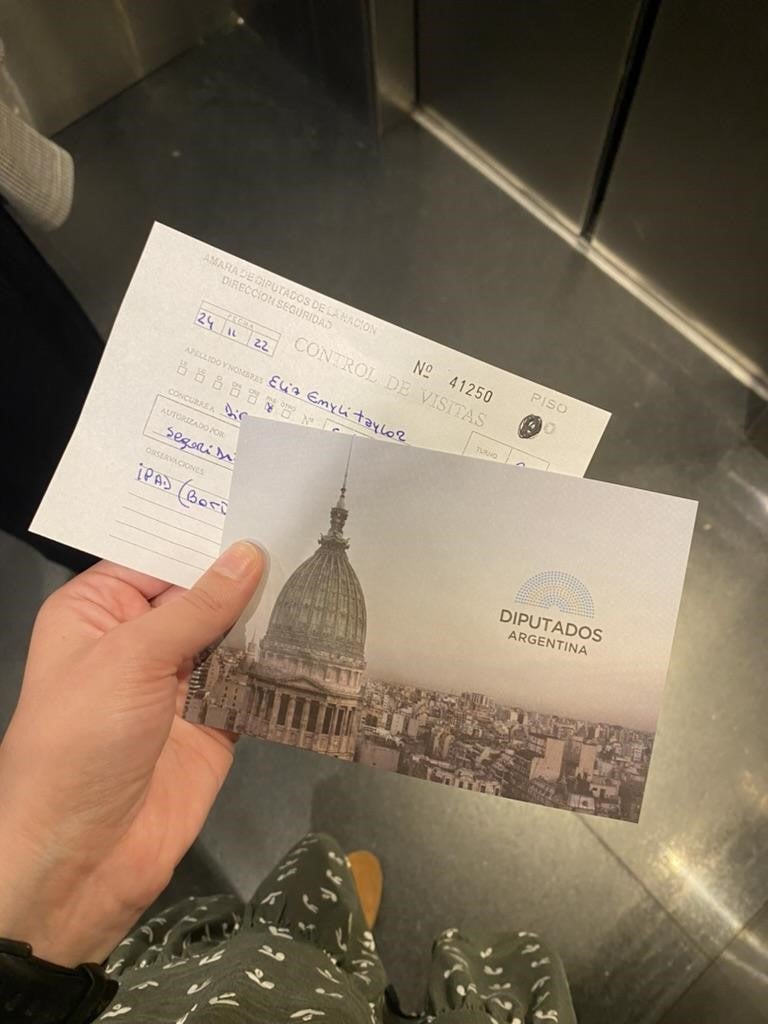 AMARA DE DIPUTADOS DE LA NACION
DIRECCION SEGURIDAD
FECHA
24 11 22
CONTROL DE VISITAS
Nº 41250
PISO
APELLIDO Y NOMBRES Eliz Emyli taylor
LE LC CI DNI CRE PAS OTRO Nº
CONCURRE A Dir
TURNO
AUTORIZADO POR
segurida
OBSERVACIONES
iPAD (Bor
DIPUTADOS
ARGENTINA